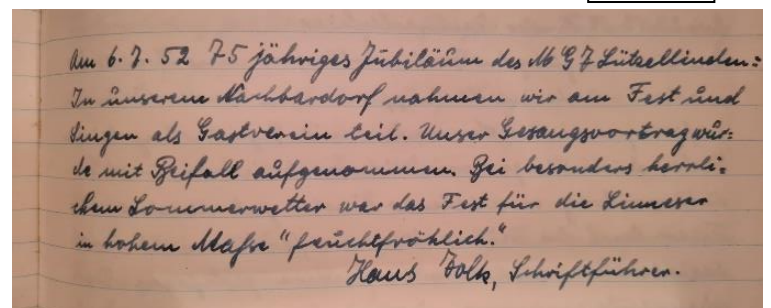 Am 6. 7. 52 75 jähriges Jubiläum des M G V Lützellinden:
In unserem Nachbardorf nahmen wir am Fest und
Singen als Gastverein teil. Unser Gesangsvortrag wur:
de mit Beifall aufgenommen. Bei besonders herrli:
chem Sommerwetter war das Fest für die Linneser
in hohem Maße "feuchtfröhlich."
Hans Volk, Schriftführer.